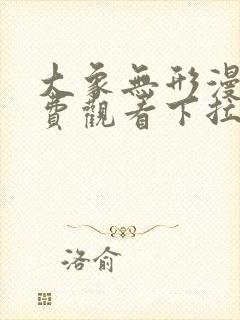 大象無形漫
費觀看下拉
洛俞